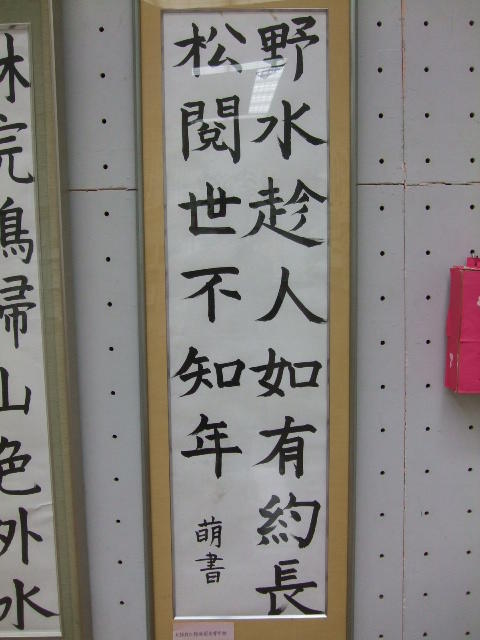 野水趁人如有約長
松閱世不知年
萌書
林完鳥帰山色外水